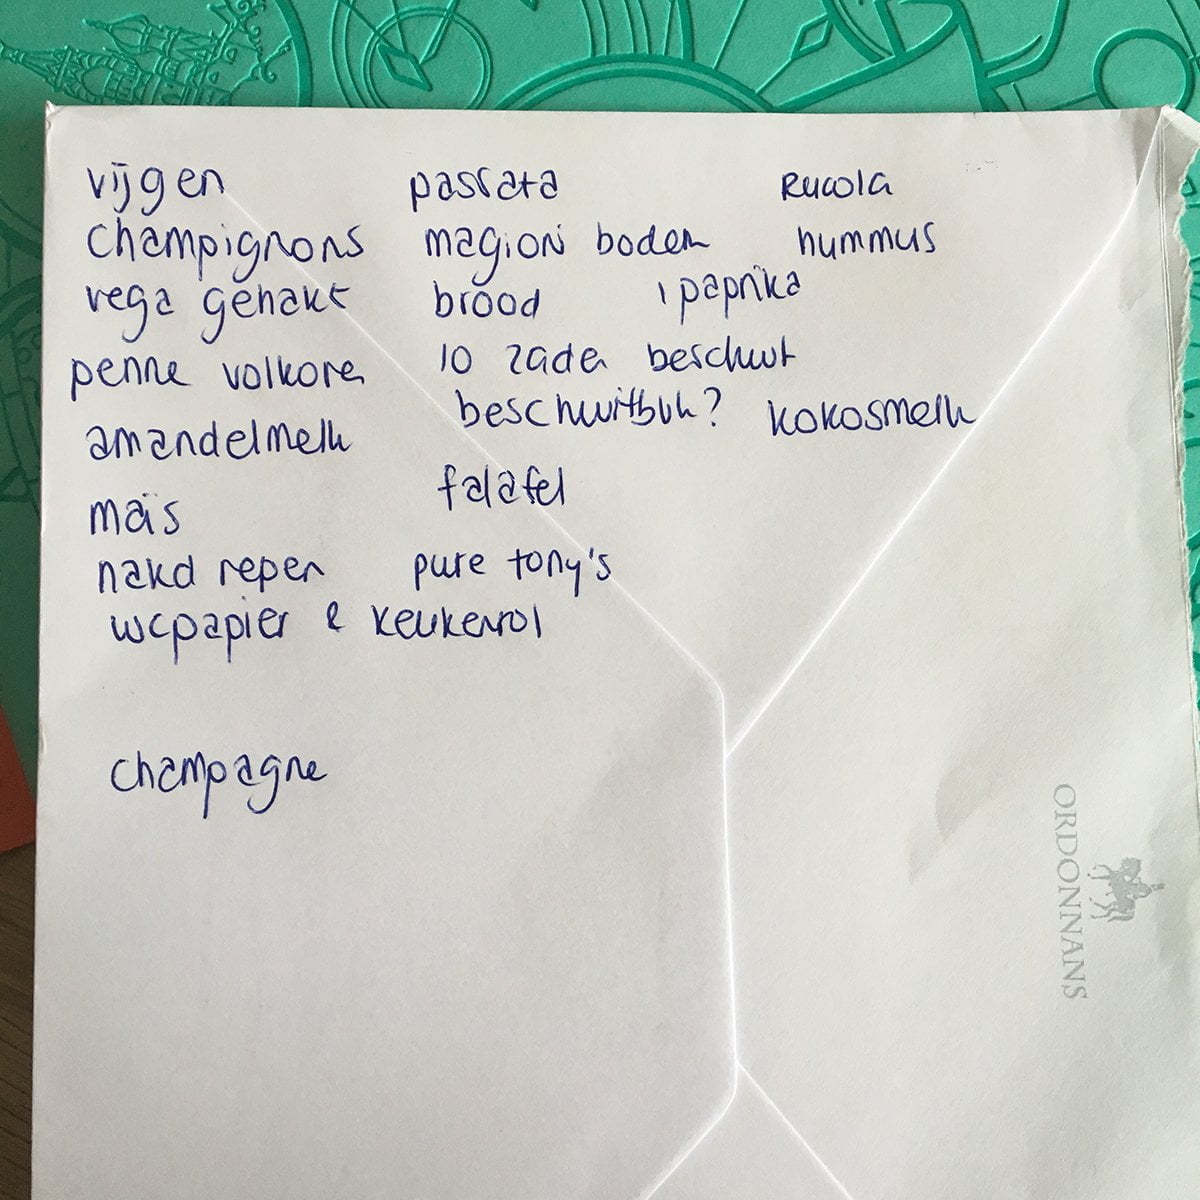 vijgen
champignons
vega gehakt
penne volkoren
amandelmelk
maïs
nakd repen
wcpapier & keukenrol
champagne
passata
magioni bodem
brood
10 zaden beschuit
beschuitbus?
falafel
pure tony's
Rucola
hummus
1 paprika
kokosmelk
ORDONNANS